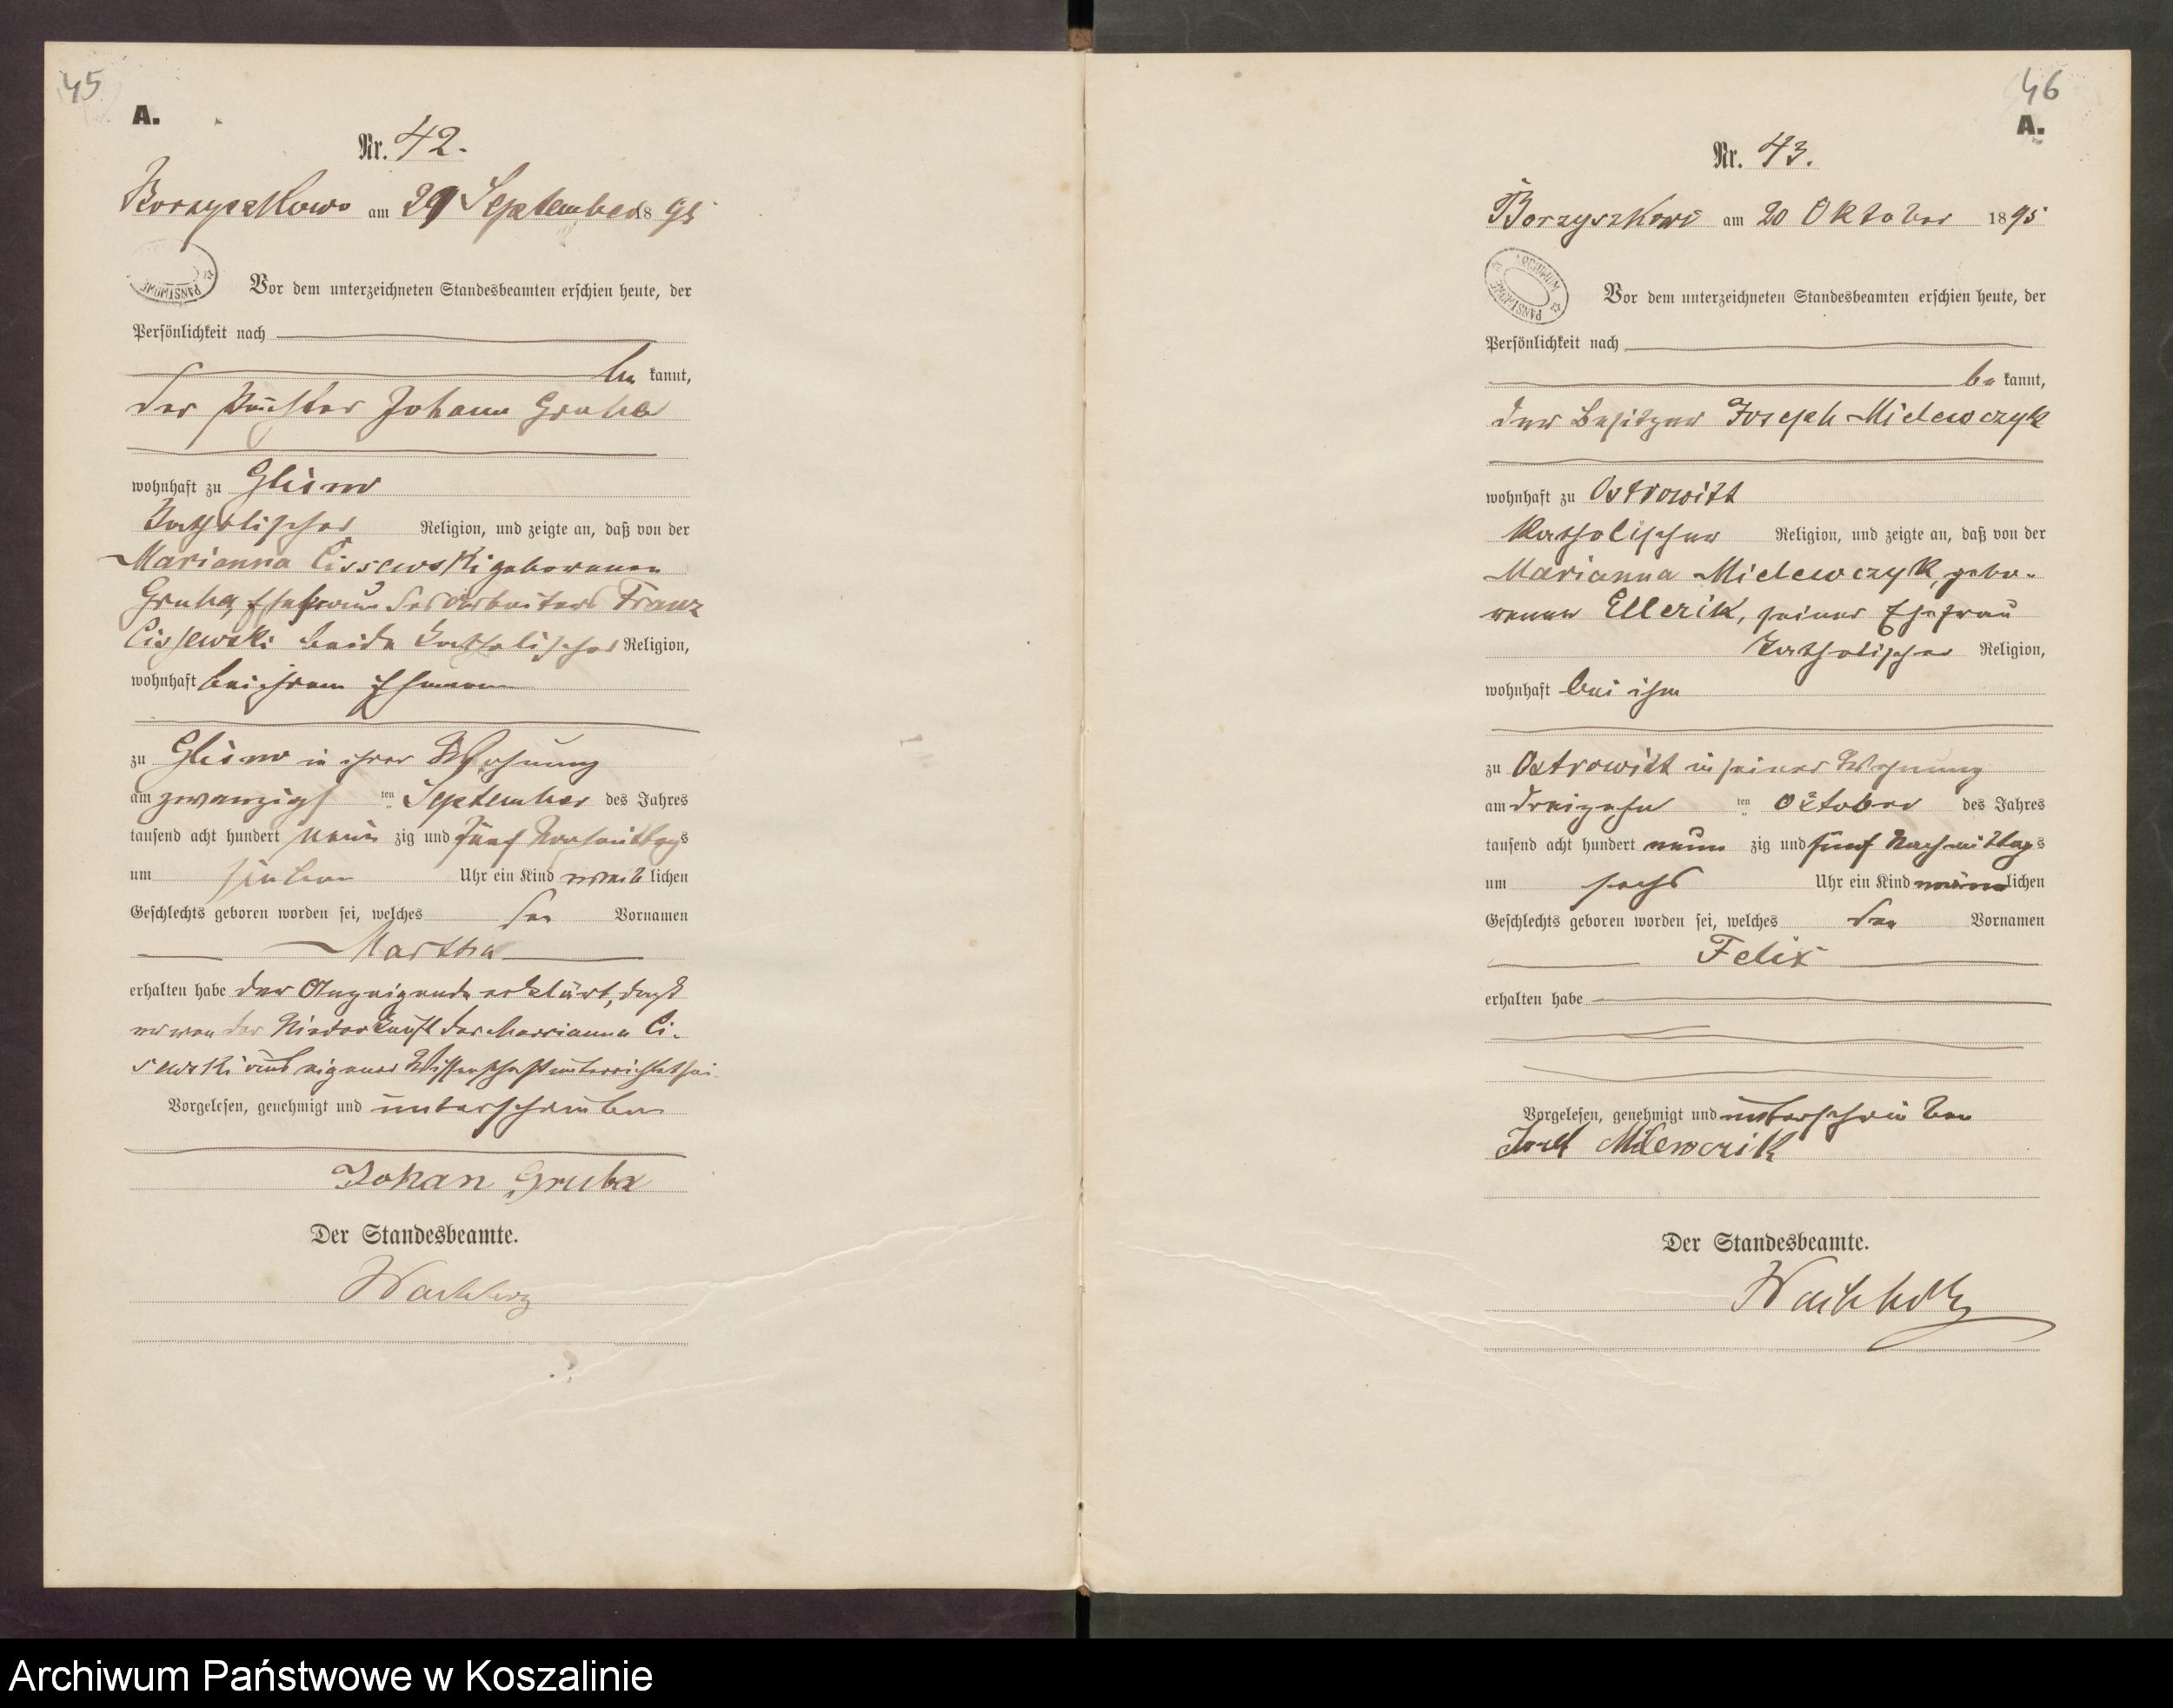 45
A.
Nr. 42.
Borzyszkowo am 29 September 1895
Vor dem unterzeichneten Standesbeamten erschien heute, der
Persönlichkeit nach
be kannt,
der Pächter Johann Gruba
wohnhaft zu Glisno
katholischer Religion, und zeigte an, daß von der
Marianna Cissewski geborenen
Gruba, Ehefrau des Arbeiters Franz
Cissewski beide katholischer Religion,
wohnhaft bei ihrem Ehemann
zu Glisno in ihrer Wohnung
am zwanzigsten September des Jahres
tausend acht hundert neun zig und fünf Vormittags
um sieben Uhr ein Kind weib lichen
Geschlechts geboren worden sei, welches den Vornamen
Martha
erhalten habe der Anzeigende erklärt, daß
er von der Niederkunft der Marianna Ci-
sewski aus eigener Wissenschaft unterrichtet sei
Vorgelesen, genehmigt und unterschrieben
Johan Gruba
Der Standesbeamte.
Wachholz
46
A.
Nr. 43.
Borzyszkowo am 20 Oktober 1895
ARCHIWUM PAŃSTWOWE
Vor dem unterzeichneten Standesbeamten erschien heute, der
Persönlichkeit nach
be kannt,
der Besitzer Joseph Mielewczyk
wohnhaft zu Ostrowitt
katholischer Religion, und zeigte an, daß von der
Marianna Mielewczyk, gebo-
renen Ellerik, seiner Ehefrau
katholischer Religion,
wohnhaft bei ihm
zu Ostrowitt in seiner Wohnung
am dreizehn ten Oktober des Jahres
tausend acht hundert neun zig und fünf Nachmittags
um sechs Uhr ein Kind männ lichen
Geschlechts geboren worden sei, welches den Vornamen
Felix
erhalten habe
Vorgelesen, genehmigt und unterschrieben
Milewczik
Der Standesbeamte.
Wachholz
Archiwum Państwowe w Koszalinie